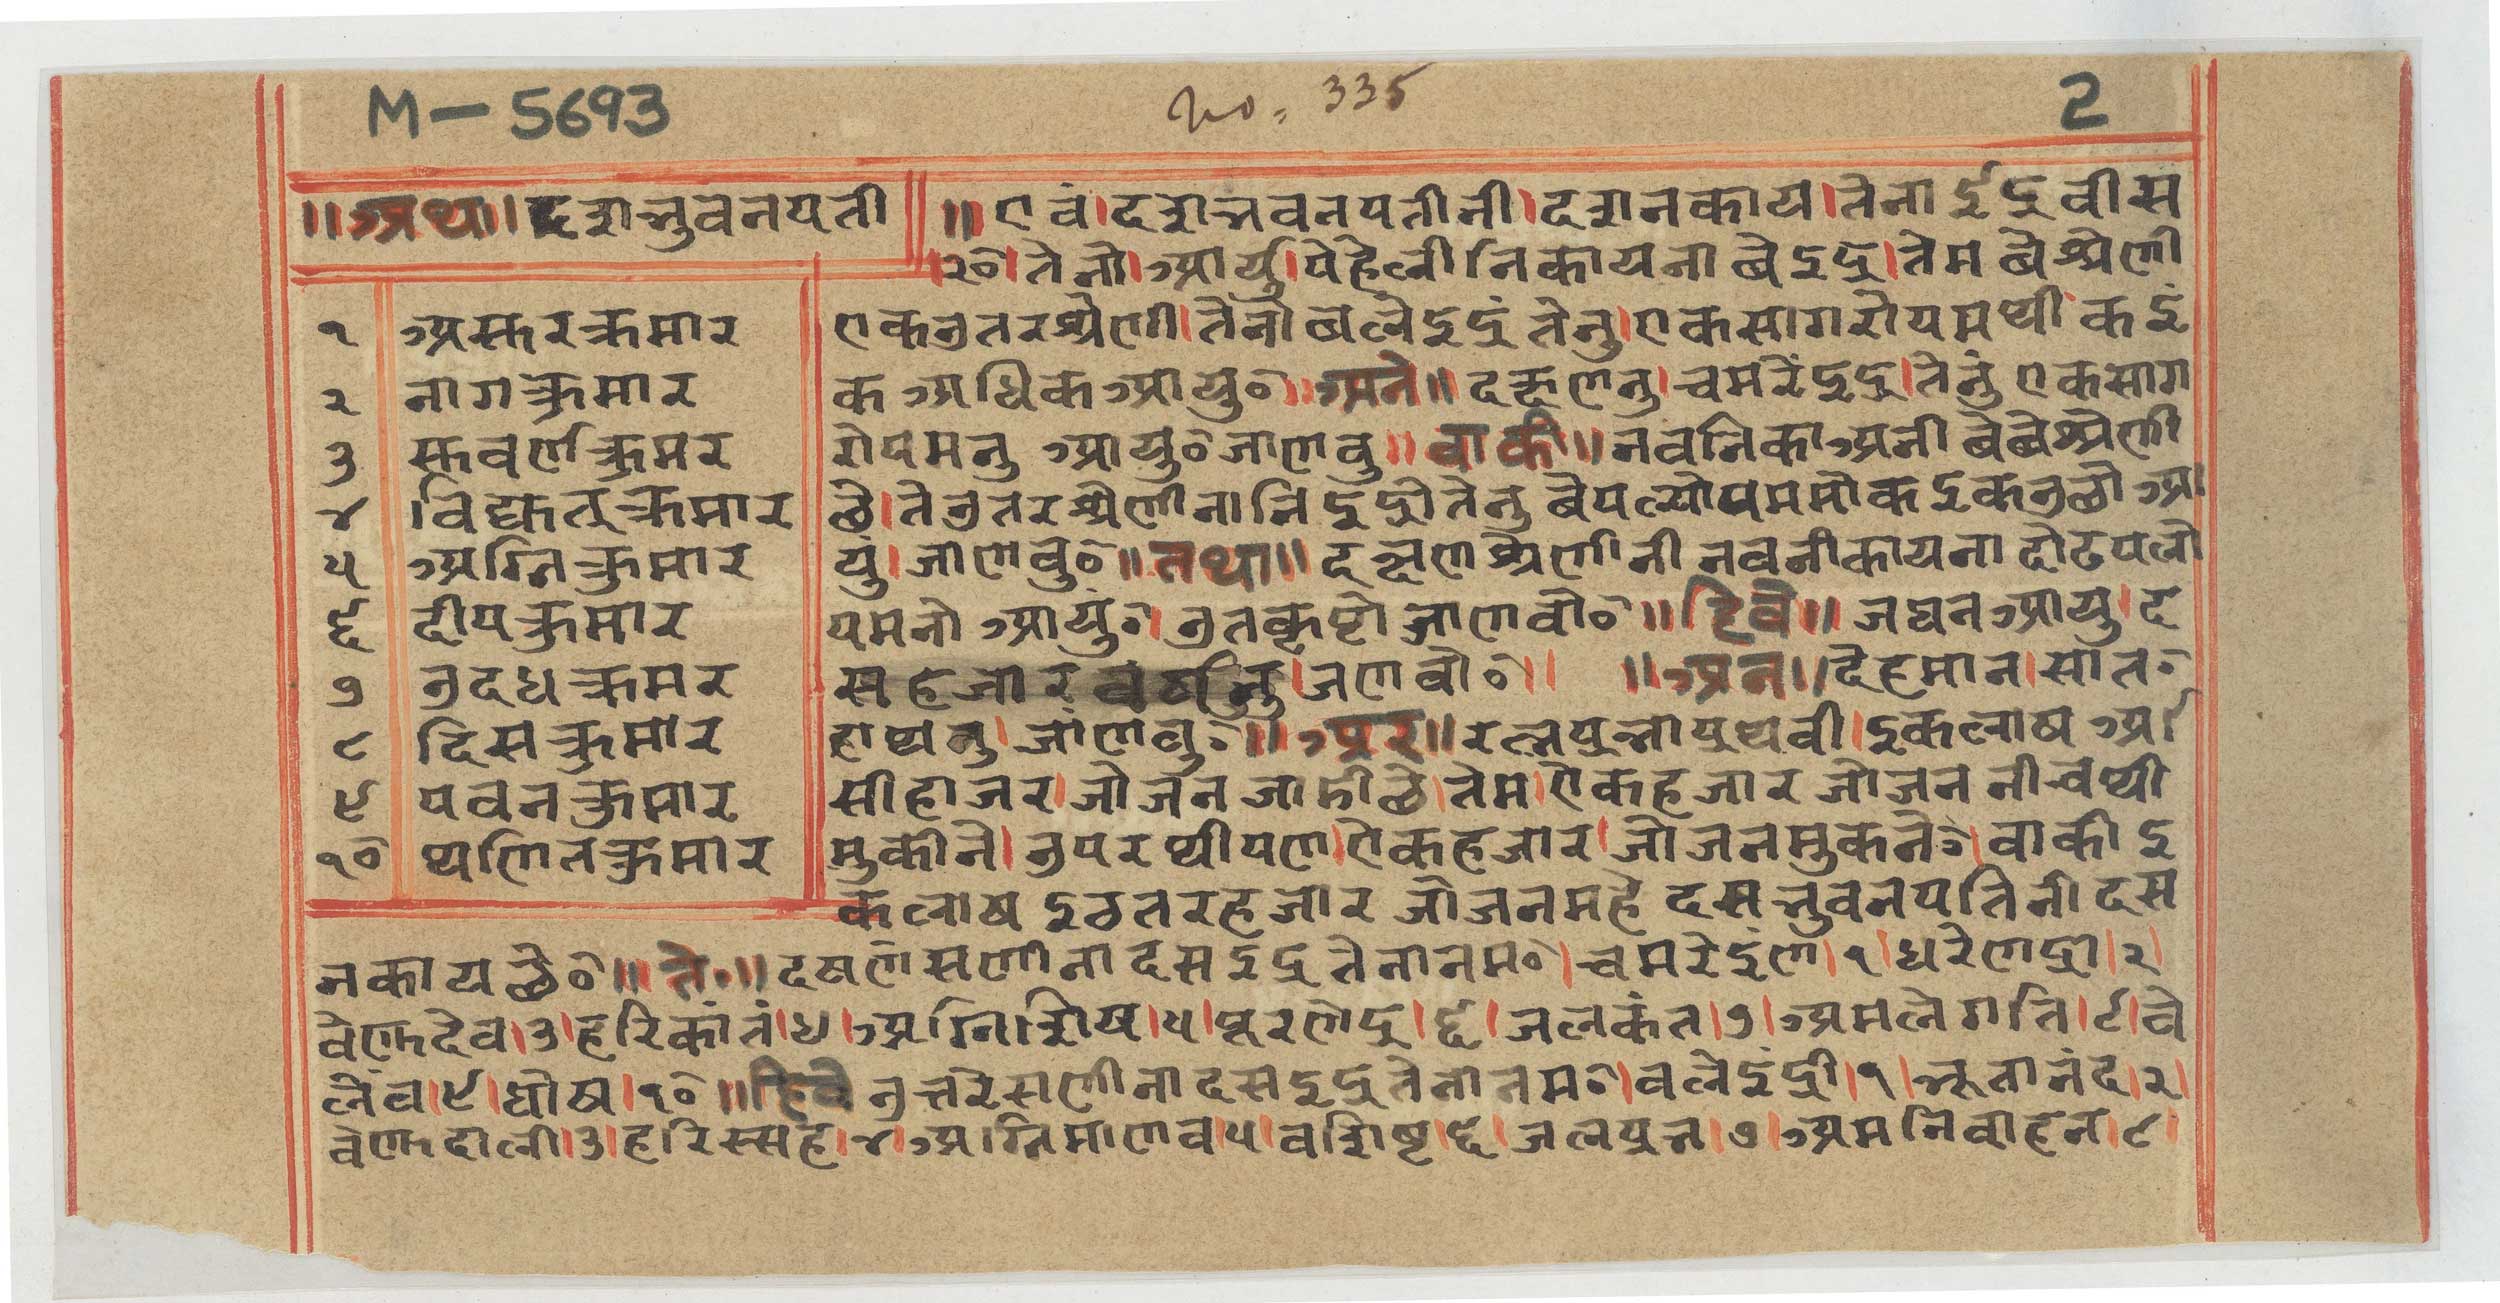 M — 5693
No. 335
2
॥अथ॥ दशभुवनपती
१ असुरकुमार
२ नागकुमार
३ सुवर्णकुमर
४ विद्युतकुमार
५ अग्निकुमार
६ दीपकुमार
७ उदधकुमर
८ दिसकुमार
९ पवनकुमार
१० थणितकुमार
॥ एवं।दशभवनपतीनी।दशनकाय।तेना इंद्र वीस
२०।तेनो।आर्यु।पेहेली निकायना बे इंद्र।तेम बे श्रेणी
एक उतरश्रेणी।तेनो बले इंद्रं तेनु।एक सागरोपमथी कइं
क अधिक आयु०॥अने॥ चमरेंद्र।तेनुं एकसाग
रोपमनु आयु० जाणवु॥बाकी॥ नवनिकाअनी बेबेश्रेणी
छे।ते उतरश्रेणीना बेपल्योपममो कइक उछो आ
युं।जाणवु०॥तथा॥ नवनीकायना दोढपलो
पमनो आयुं०।उतकृष्टो जाणवो०॥हिवे॥जघन आयु।द
स हजार जणवो०।॥अने॥देहमान।सात०
हाथनु।जांणवु०॥ इकलाख अ
सीहाजर।जोजन जाडीछे।तेम।एकहजार जोजन नीचथी
मुकीने।उपरथीपण।एकहजार।जोजनमुकने०।बाकी इ
कलाख इठतरहजार जोजनमहे दसभुवनपतिनी दस
नकायछे०॥ते०॥ दस इंद्र तेनानम०।चमरेइंण।१।धरेणेद्रा।२।
वेणुदेव।३।हरिकांतं।४।अग्निशिष।५।पुरणेद्र।६।जलकंत।७।अमलेगति।८।वे
लंव।९।घोष।१०॥हिवे उत्तरेसणीना दस इंद्र तेनानम०।वलेइंद्री।१।भूतानंद।२।
वेणुदाली।३।हरिस्सह।४।अग्निमाणव।५।वशिष्ट।६।जलप्रभ।७।अमनिवाहन।८।